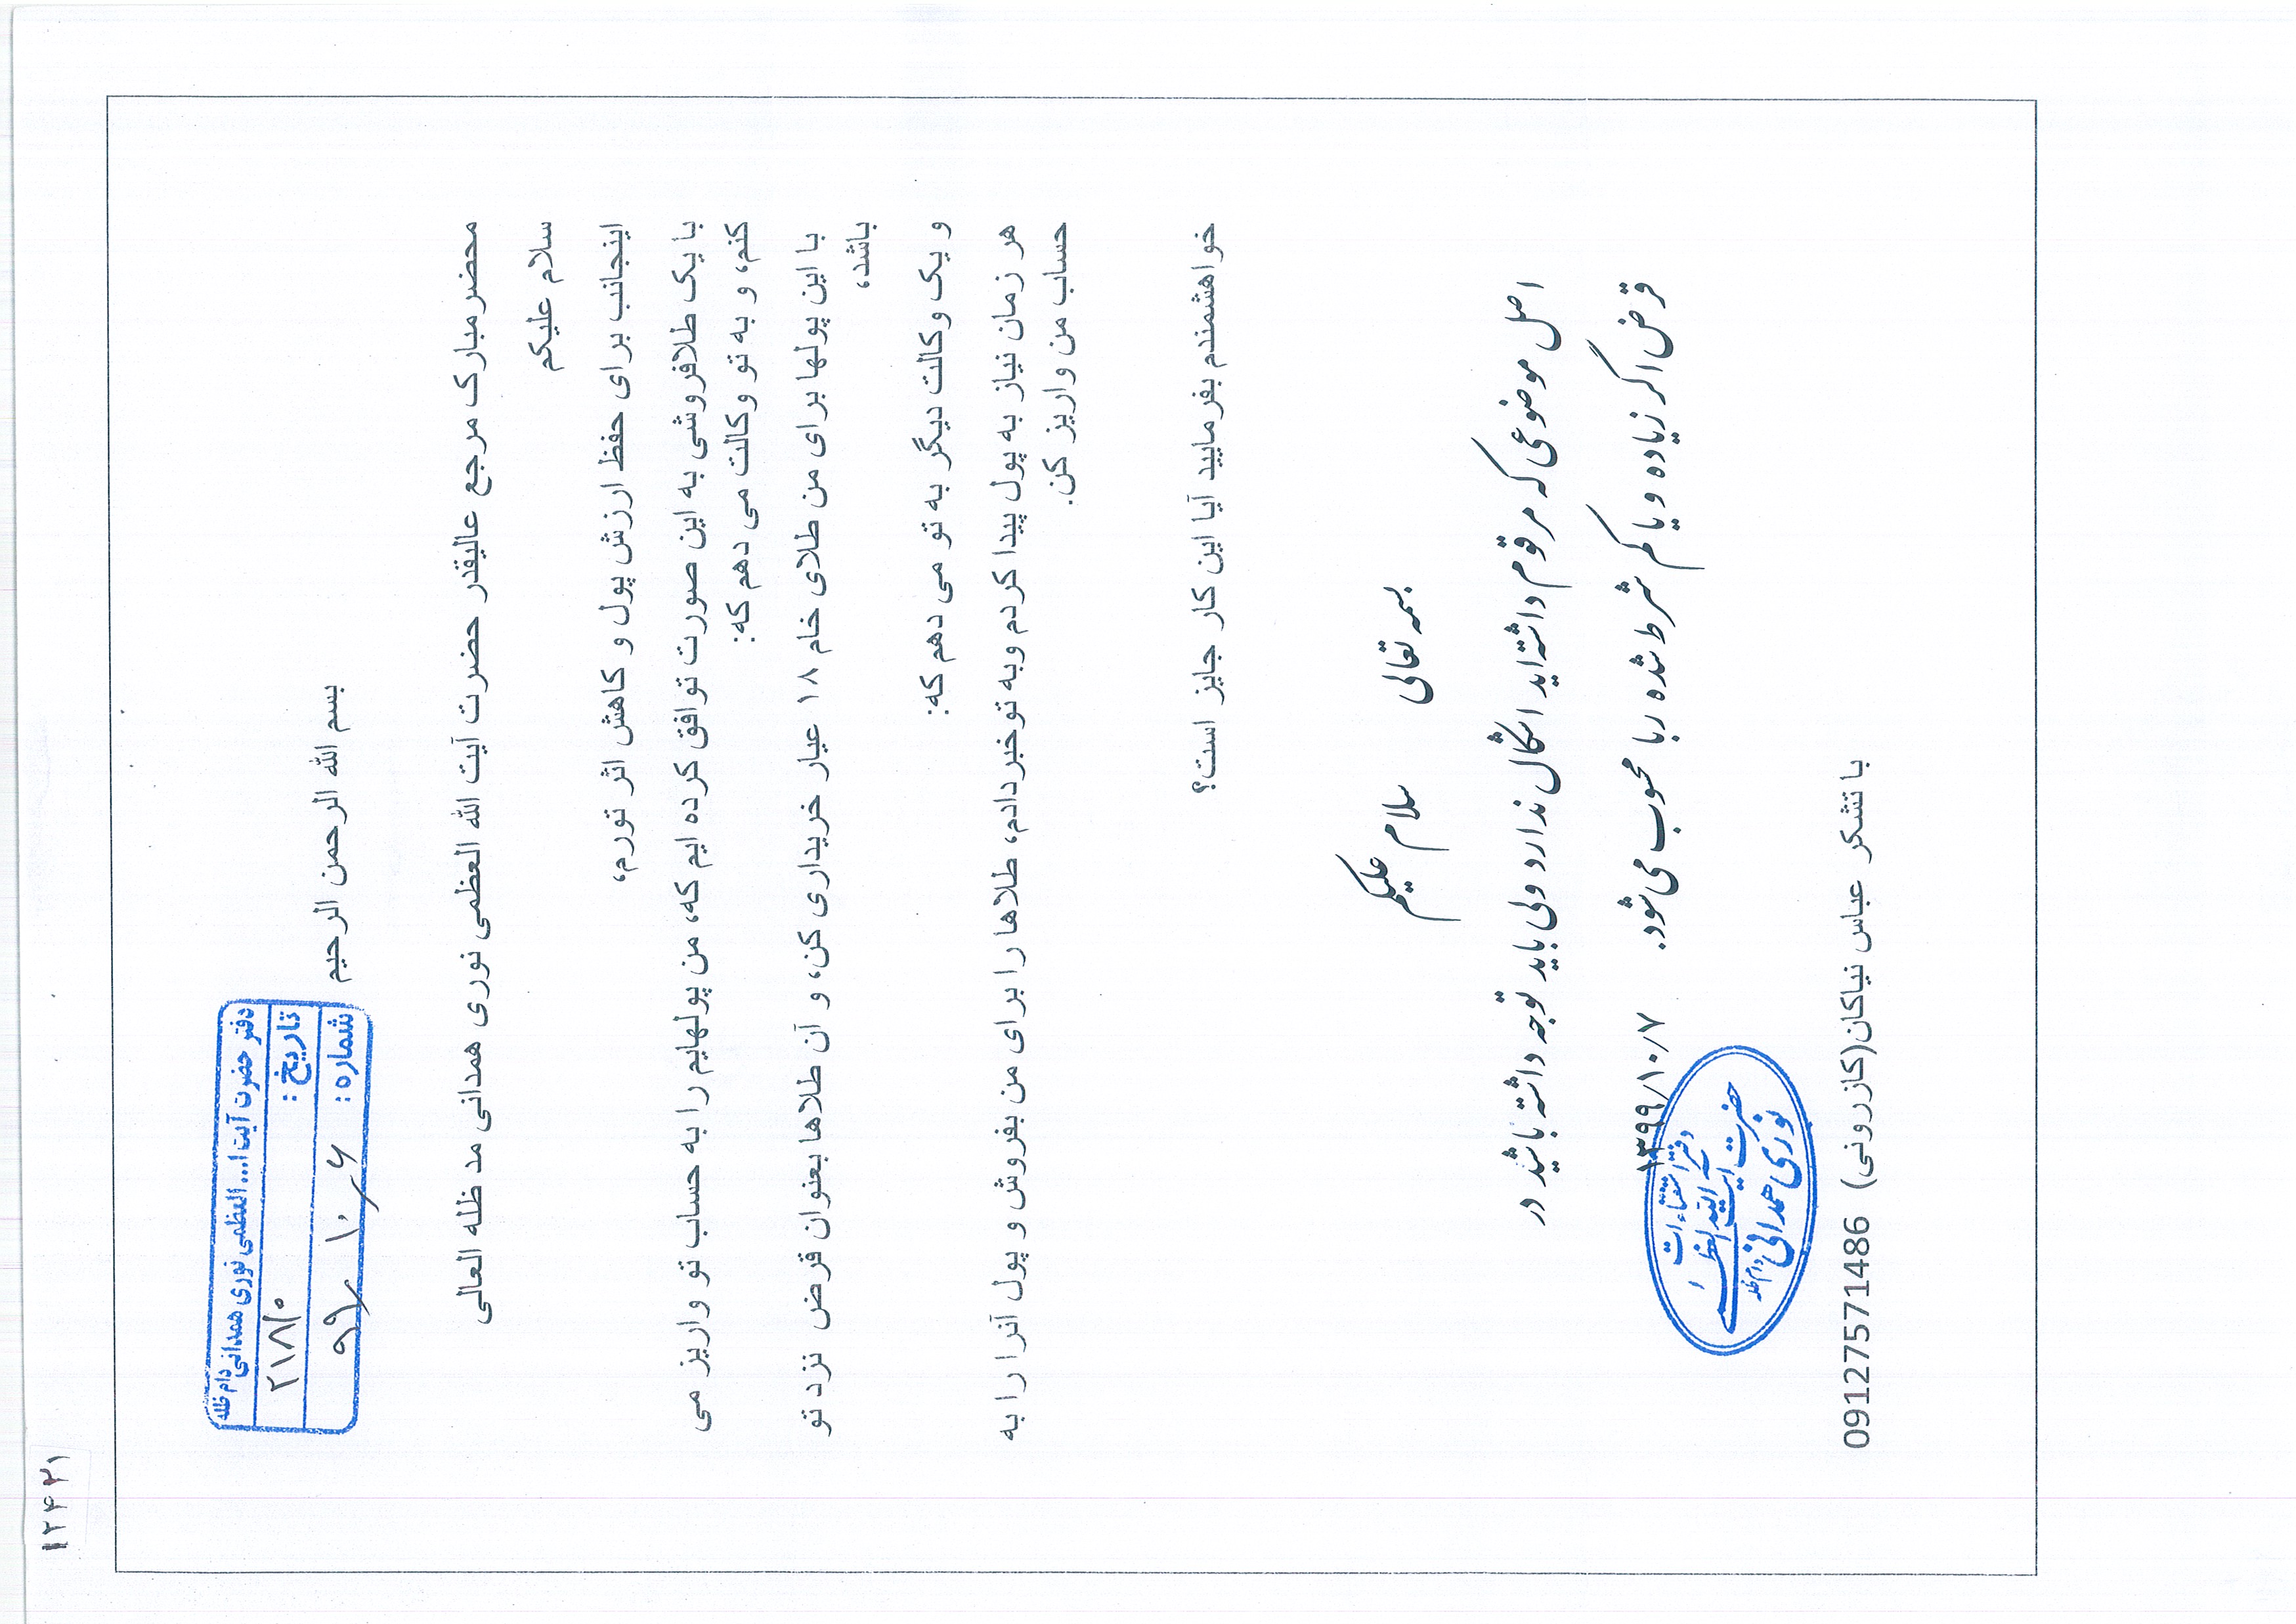 ۱۲۴۲۱
دفتر حضرت آیت ا... العظمی نوری همدانی دام ظله
تاریخ : ۲۱۸۱۰
شماره : ۹۹/۱۰/۶
بسم الله الرحمن الرحیم
محضر مبارک مرجع عالیقدر حضرت آیت الله العظمی نوری همدانی مد ظله العالی
سلام علیکم
اینجانب برای حفظ ارزش پول و کاهش اثر تورم،
با یک طلافروشی به این صورت توافق کرده ایم که، من پولهایم را به حساب تو واریز می
کنم، و به تو وکالت می دهم که:
با این پولها برای من طلای خام ۱۸ عیار خریداری کن، و آن طلاها بعنوان قرض نزد تو
باشد،
و یک وکالت دیگر به تو می دهم که:
هر زمان نیاز به پول پیدا کردم وبه تو خبر دادم، طلاها را برای من بفروش و پول آنرا را به
حساب من واریز کن.
خواهشمندم بفرمایید آیا این کار جایز است؟
بسمه تعالی
سلام علیکم
اصل موضوعی که مرقوم داشته اید اشکال ندارد ولی باید توجه داشته باشید در
قرض اگر زیاده و یا کم شرط شده ربا محسوب می شود.
۱۳۹۹/۱۰/۷
دفتر استفتاءات
حضرت آیت الله العظمی
نوری همدانی دام ظله
با تشکر عباس نیاکان(کازرونی) 09127571486